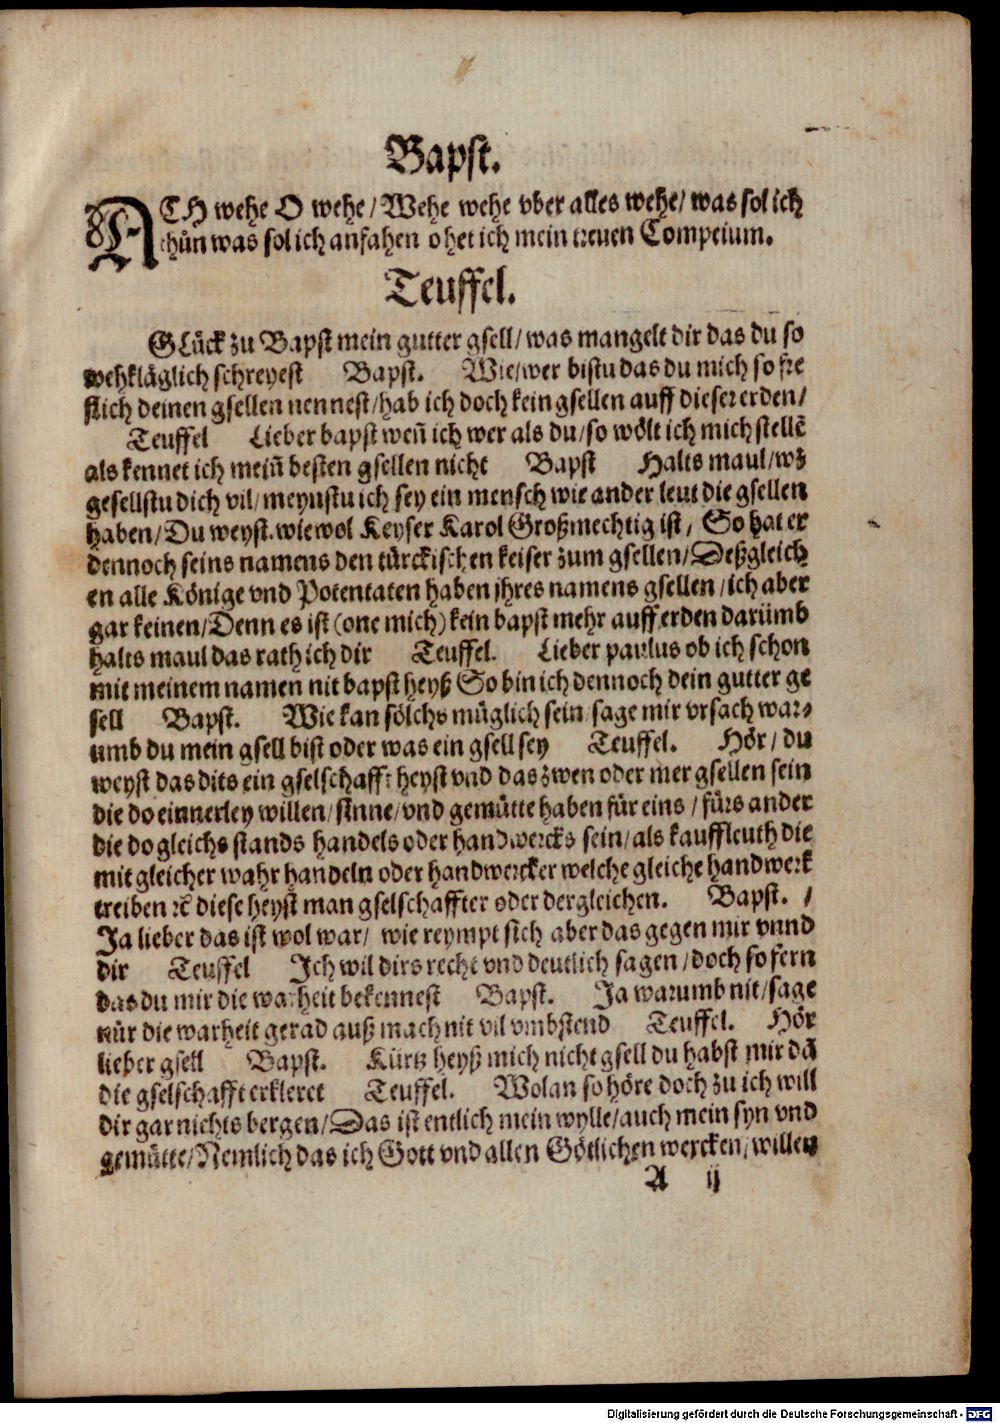 Bapst.
ACH wehe O wehe / Wehe wehe vber alles wehe / was sol ich
thůn was sol ich anfahen o het ich mein treuen Compeium.
Teuffel.
GLück zu Bapst mein gutter gsell / was mangelt dir das du so
wehkläglich schreyest Bapst. Wie / wer bistu das du mich so fre
flich deinen gsellen nennest / hab ich doch kein gsellen auff dieser erden /
Teuffel Lieber bapst weñ ich wer als du / so wölt ich mich stellē
als kennet ich meiñ besten gsellen nicht Bapst Halts maul / wz
gesellstu dich vil / meynstu ich sey ein mensch wie ander leut die gsellen
haben / Du weyst. wiewol Keyser Karol Großmechtig ist / So hat er
dennoch seins namens den türckischen keiser zum gsellen / Deßgleich
en alle Könige vnd Potentaten haben jhres namens gsellen / ich aber
gar keinen / Denn es ist (one mich) kein bapst mehr auff erden darümb
halts maul das rath ich dir Teuffel. Lieber paulus ob ich schon
mit meinem namen nit bapst heyß So bin ich dennoch dein gutter ge
sell Bapst. Wie kan sölchs müglich sein / sage mir vrsach war⸗
umb du mein gsell bist oder was ein gsell sey Teuffel. Hör / du
weyst das dits ein gselschafft heyst vnd das zwen oder mer gsellen sein
die do einnerley willen / sinne / vnd gemütte haben für eins / fürs ander
die do gleichs stands handels oder handwercks sein / als kauffleuth die
mit gleicher wahr handeln oder handwercker welche gleiche handwerk
treiben ⁊c̃ diese heyst man gselschaffter oder dergleichen. Bapst. /
Ja lieber das ist wol war / wie reympt sich aber das gegen mir vnnd
dir Teuffel Ich wil dirs recht vnd deutlich sagen / doch so fern
das du mir die warheit bekennest Bapst. Ja warumb nit / sage
nür die warheit gerad auß mach nit vil vmbstend Teuffel. Hör
lieber gsell Bapst. Kürtz heyß mich nicht gsell du habst mir dā
die gselschafft erkleret Teuffel. Wolan so höre doch zu ich will
dir gar nichts bergen / Das ist entlich mein wylle / auch mein syn vnd
gemütte / Nemlich das ich Gott vnd allen Götlichen wercken / willen
A ij
Digitalisierung gefördert durch die Deutsche Forschungsgemeinschaft - DFG